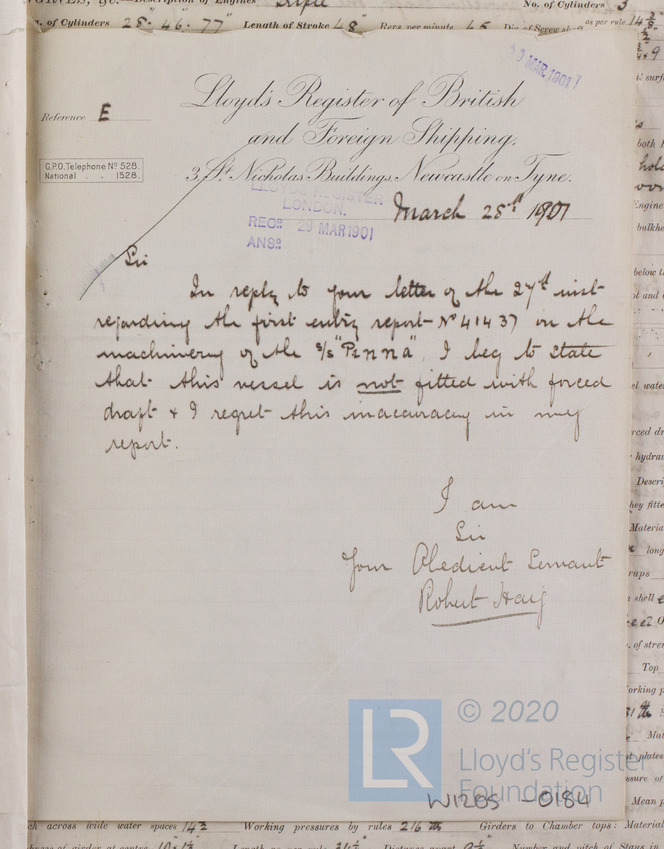 No. of Cylinders 3
No. of Cylinders 28" 46" 77" Length of Stroke 48" Revs per minute 65 Dia. of Screw shaft as per rule 14
20 MAR 1901
Lloyd's Register of British
and Foreign Shipping.
Reference E
G.P.O. Telephone No 528.
National . . 1528.
3, St Nicholas Buildings Newcastle on Tyne.
LLOYD'S REGISTER
LONDON.
RECD 29 MAR 1901
ANSD
March 28th 1901
Sir
In reply to your letter of the 27th inst
regarding the first entry report No 41437 on the
machinery of the s/s "Pinna", I beg to state
that this vessel is not fitted with forced
draft & I regret this inaccuracy in my
report.
I am
Sir
Your Obedient Servant
Robert Haig
LR
© 2020
Lloyd's Register
Foundation
W1205 - 0184
across wide water spaces 14 Working pressures by rules 216 Girders to Chamber tops: Material
of girder at centre Length as per rule Distance apart Number and pitch of Stays in